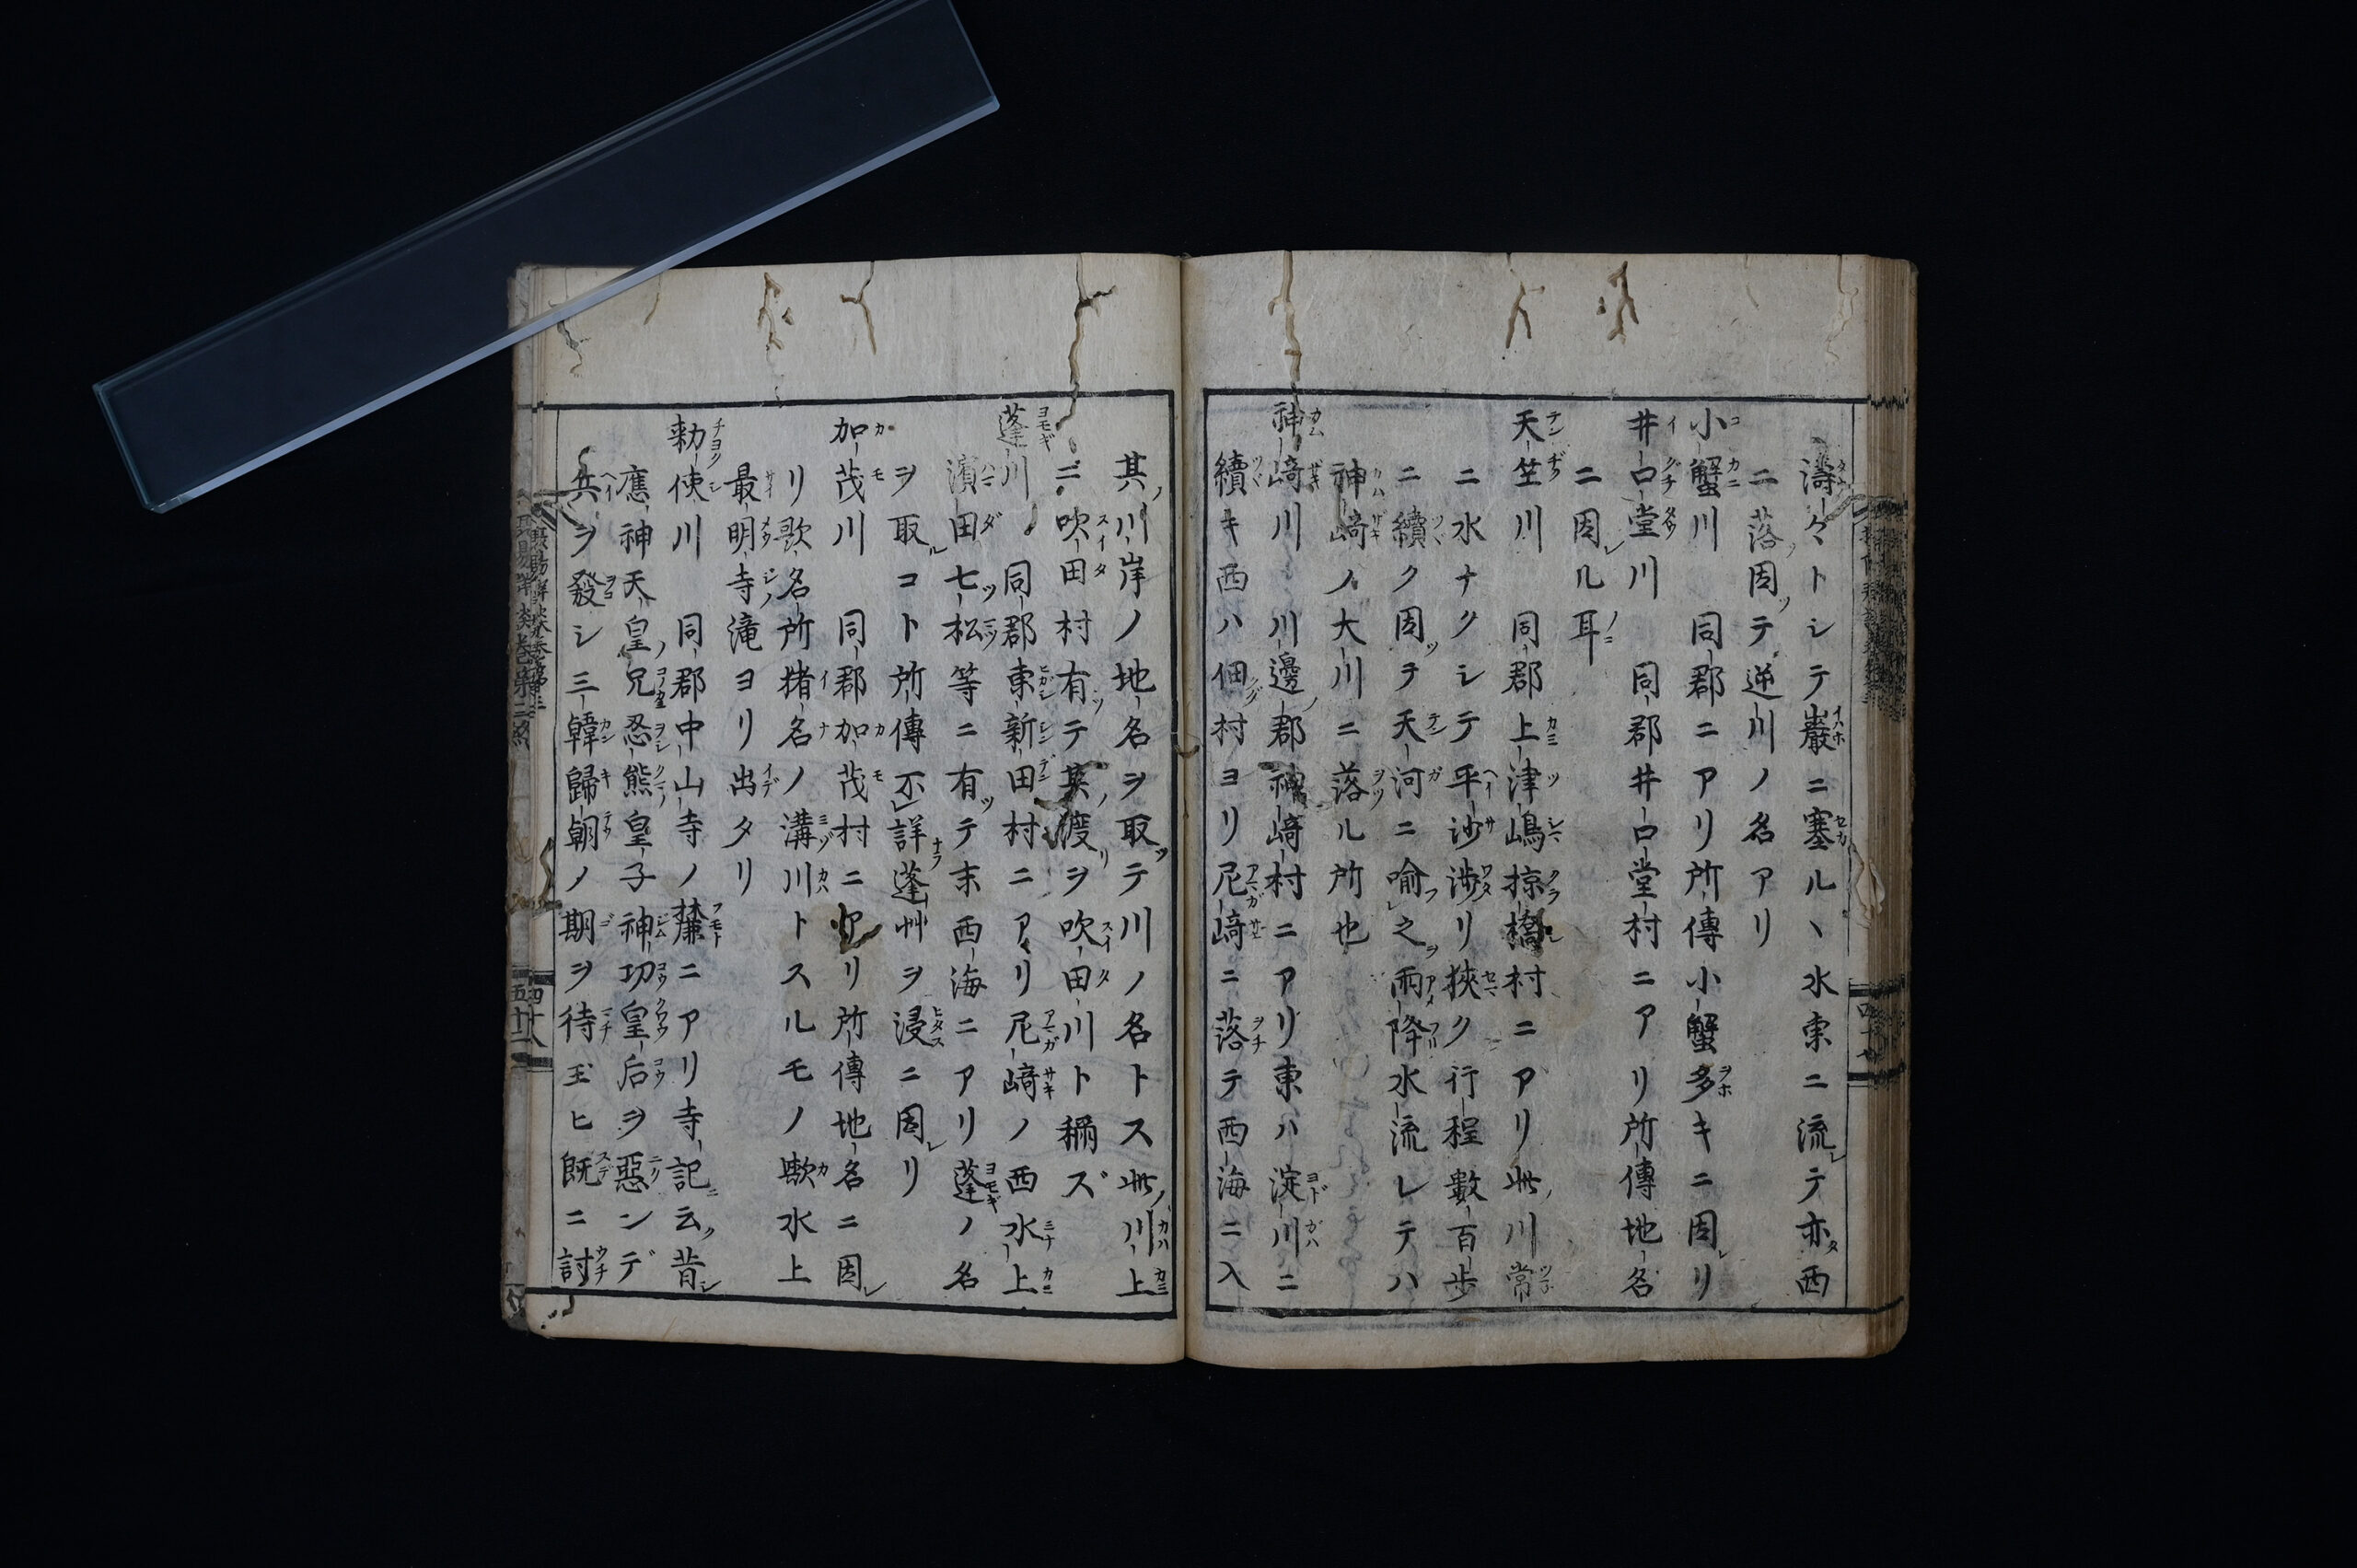 濤々トシテ巖ニ塞ルヽ水東ニ流テ亦西
ニ落因テ逆川ノ名アリ
小蟹川 同郡ニアリ所傳小蟹多キニ因リ
井口堂川 同郡井口堂村ニアリ所傳地名
ニ因ル耳
天竺川 同郡上津嶋掠橋村ニアリ此川常
ニ水ナクシテ平沙渉リ狹ク行程數百歩
ニ續ク因テ天河ニ喻之雨降水流レテハ
神﨑ノ大川ニ落ル所也
神﨑川 川邊郡神﨑村ニアリ東ハ淀川ニ
續キ西ハ佃村ヨリ尼﨑ニ落テ西海ニ入
其川岸ノ地名ヲ取テ川ノ名トス此川上
ニ吹田村有テ其渡ヲ吹田川ト稱ズ
蓬川 同郡東新田村ニアリ尼﨑ノ西水上
濱田七松等ニ有テ末西海ニアリ蓬ノ名
ヲ取コト所傳不詳蓬艸ヲ浸ニ因リ
加茂川 同郡加茂村ニアリ所傳地名ニ因
リ歌名所猪名ノ溝川トスルモノ歟水上
最明寺滝ヨリ出タリ
勅使川 同郡中山寺ノ麓ニアリ寺記云昔
應神天皇兄忍熊皇子神功皇后ヲ惡ンデ
兵ヲ發シ三韓歸朝ノ期ヲ待玉ヒ既ニ討